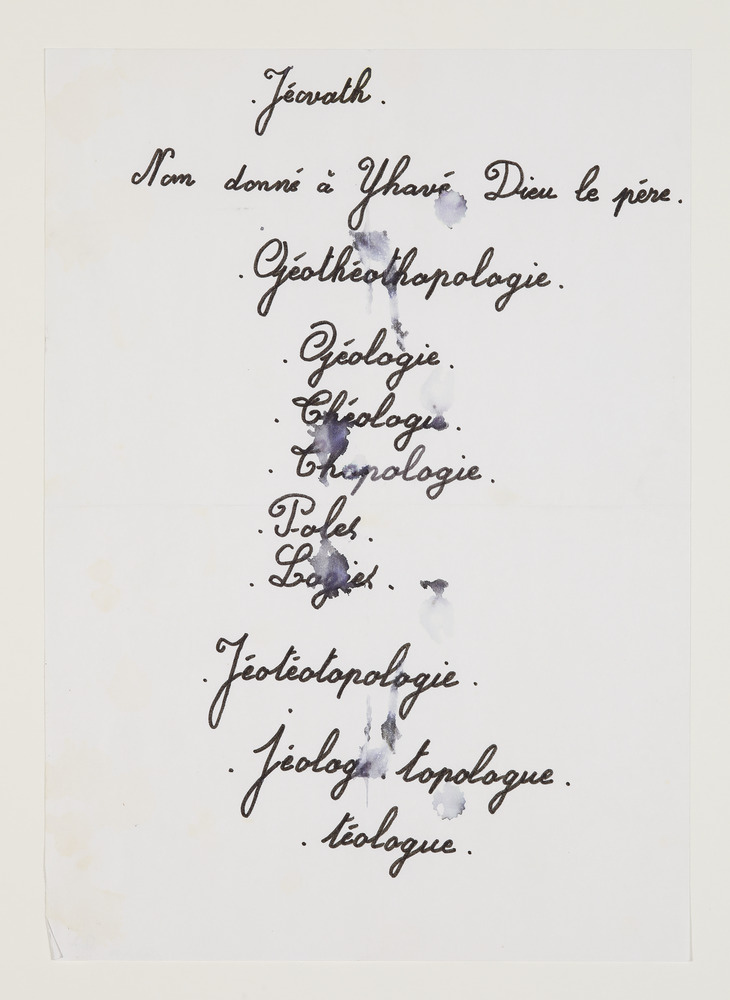 . Jéovath .
Nom donné à Yhavé Dieu le père .
. Géothéothopologie .
. Géologie .
. Théologie .
. Thopologie .
. Poles .
. Logies .
. Jéotéotopologie .
. jéologi . topologue .
. téologue .